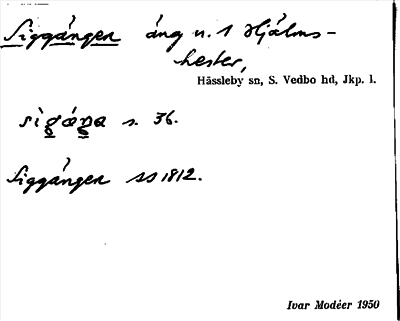 Siggången äng u. 1 Hjälms-
hester,
Hässleby sn, S. Vedbo hd, Jkp. l.
s. 36.
Siggången SS 1812.
Ivar Modéer 1950